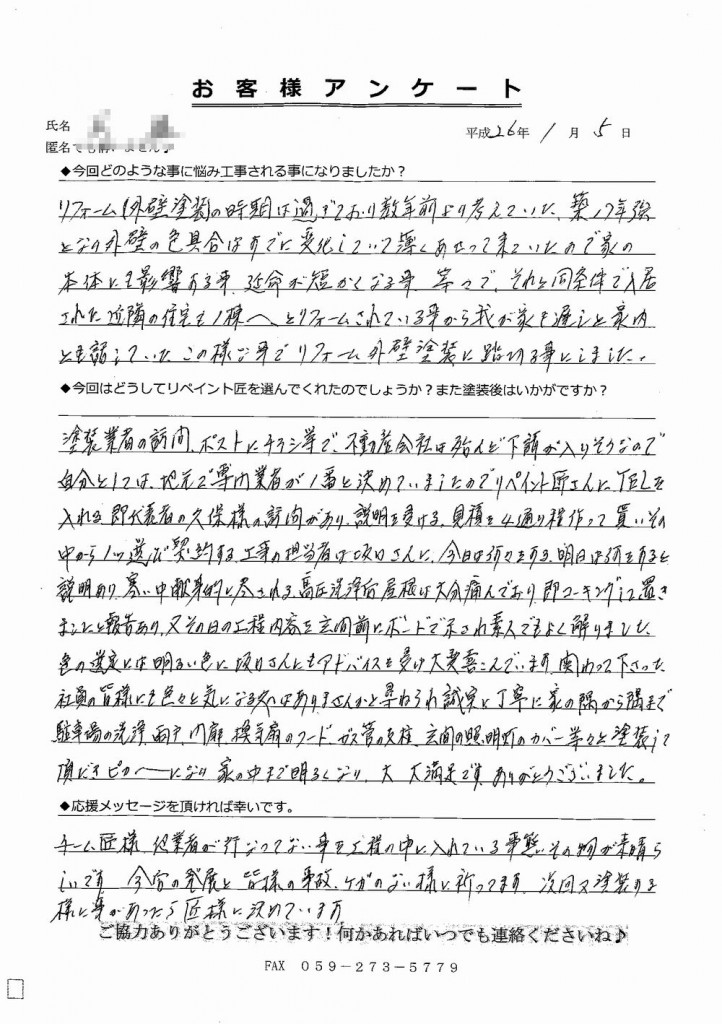 お客様アンケート
氏名
匿名でも構いません♪
平成26年 1月 5日
◆今回どのような事に悩み工事される事になりましたか?
リフォーム(外壁塗装)の時期は過ぎており数年前より考えていた、築17年強
となり外壁の色具合はすでに変化していて薄くあせって来ていたので家の
本体にも影響ある事 延命が短かくなる事 等々で、それと同条件で入居
された近隣の住宅も1棟へとリフォームされている事から我が家も遅しと家内
とも話していた、この様な事でリフォーム外壁塗装に踏切る事にしました。
◆今回はどうしてリペイント匠を選んでくれたのでしょうか?また塗装後はいかがですか?
塗装業者の訪問、ポストにチラシ等で、不動産会社は殆んど下請が入りそうなので
自分としては、地元で専門業者が1番と決めていましたのでリペイント匠さんに、TELを
入れる 即代表者の久保様の訪問があり、説明を受ける、見積を4通り程作って貰いその
中から1つ選び契約する、工事の担当者は坂口さんに、今日は何々をする、明日は何をすると
説明あり、寒い中献身的に尽される、高圧洗浄后屋根は大分痛んでおり、即コーキングして置き
ましたと報告あり、又その日の工程内容を玄関前にボードで示され素人でもよく解りました、
色の選定には明るい色に 坂口さんにもアドバイスを受け大変喜こんでいます 関わって下さった
社員の皆様にも色々と気になる处はありませんかと尋ねられ誠実に丁寧に家の隅から隅まで
駐車場の洗浄、雨戸、門扉、換気扇のフード、ガス管の支柱、玄関の照明灯のカバー等々と塗装して
頂だきピカーーになり 家の中まで明るくなり、大大満足です ありがとうございました。
◆応援メッセージを頂ければ幸いです。
チーム匠様 他業者が行なってない事を工程の中に入れている事態、その物が素晴ら
しいです 今后の発展と皆様の事故、ケガのない様に祈ってます 次回又塗装する
様に事があったら匠様に決めています
ご協力ありがとうございます!何かあればいつでも連絡くださいね♪
FAX 059-273-5779